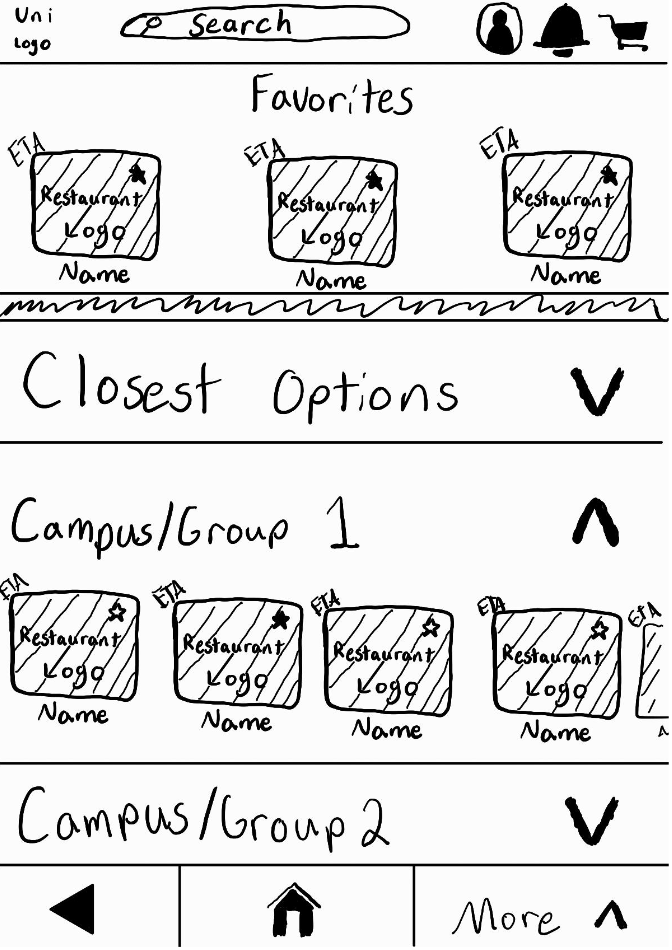 Uni
Logo
Search
Favorites
ETA
Restaurant
Logo
Name
ETA
Restaurant
Logo
Name
ETA
Restaurant
Logo
Name
Closest Options
Campus/Group 1
ETA
Restaurant
Logo
Name
ETA
Restaurant
Logo
Name
ETA
Restaurant
Logo
Name
ETA
Restaurant
Logo
Name
ETA
Campus/Group 2
More